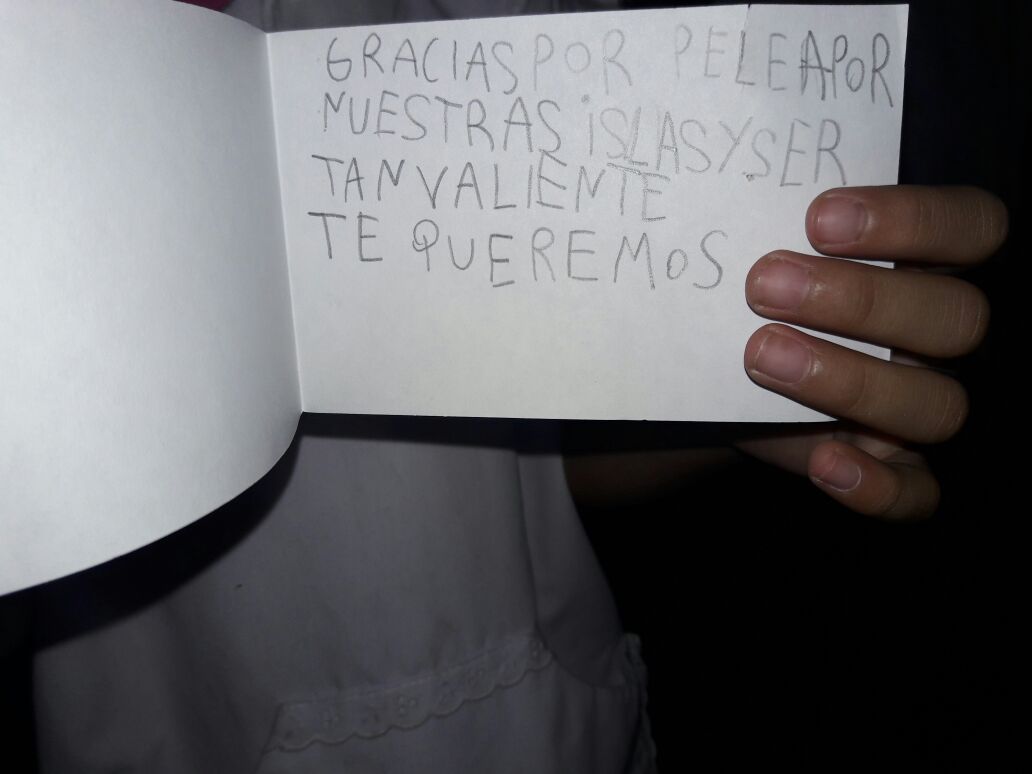 GRACIAS POR PELEA POR
NUESTRAS iSLAS Y SER
TAN VALIENTE
TE QUEREMOS